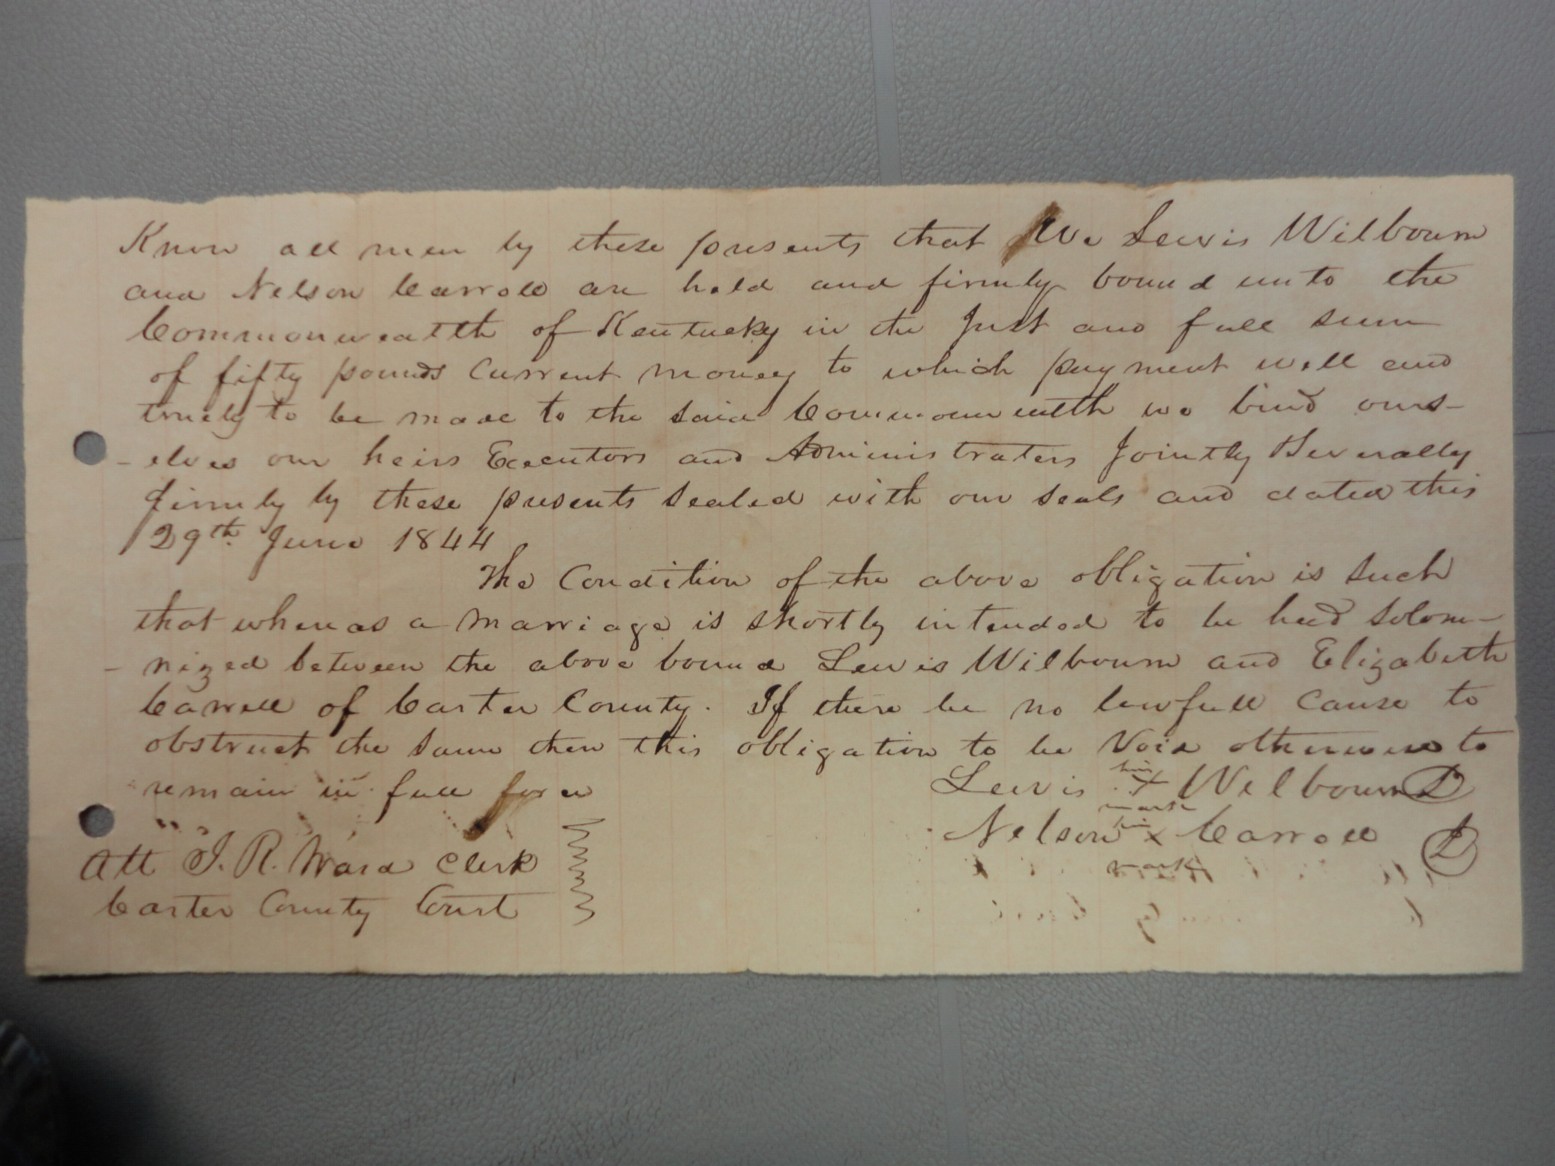 Know all men by these presents that We Lewis Wilbourn
and Nelson Carroll are held and firmly bound unto the
Commonwealth of Kentucky in the Just and full sum
of fifty pounds Current money to which payment well and
truly to be made to the said Commonwealth we bind ours-
-elves our heirs Executors and Administraters Jointly & Severally
firmly by these presents sealed with our seals and dated this
29th June 1844
The Condition of the above obligation is such
that whereas a marriage is shortly intended to be had solom-
- nized between the above bound Lewis Wilbourn and Elizabeth
Carrell of Carter County. If there be no lawfull cause to
obstruct the same then this obligation to be Void otherwise to
remain in full force
Lewis his x mark Wilbourn
Nelson his x mark Carroll
Att J. R. Ward Clerk
Carter County Court